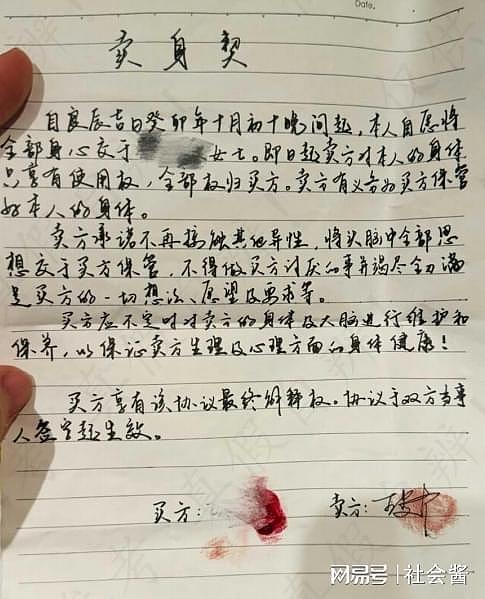 Date.
卖身契
自良辰吉日癸卯年十月初十晚间起，本人自愿将
全部身心交于 女士。即日起卖方对本人的身体
只享有使用权，全部权归买方。卖方有义务为买方保管
好本人的身体。
卖方承诺不再接触其他异性，将头脑中全部思
想交于买方保管，不得做买方讨厌的事并竭尽全力满
足买方的一切想法、愿望及要求等。
买方应不定时对卖方的身体及大脑进行维护和
保养，以保证卖方生理及心理方面的身体健康！
买方享有该协议最终解释权。协议于双方当事
人签字起生效。
买方： 卖方：
网易号 | 社会酱